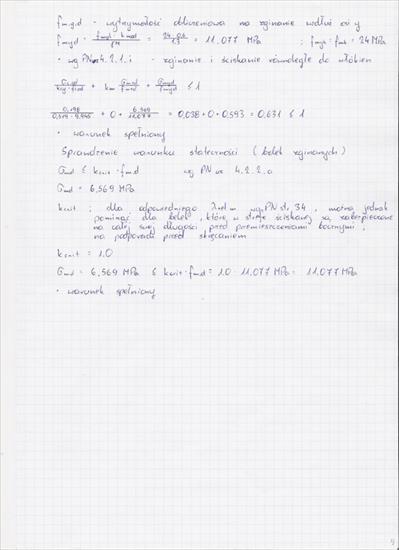 fm.y.d - wytrzymałość obliczeniowa na zginanie wzdłuż osi y
fmyd = fmyk · kmod / γM = 24 · 0,6 / 1,3 = 11.077 MPa ; fmyk = fmk = 24 MPa
• wg PN 4.2.1.i - zginanie i ściskanie równoległe do włókien
σc,o,d / kcy · fcod + km σmzd / fmzd + σmyd / fmyd ≤ 1
+ 0 + 6.569 / 11.077 = 0,038 + 0 + 0,593 = 0,631 ≤ 1
• warunek spełniony
Sprawdzenie warunku stateczności (belek zginanych)
σmd ≤ kcrit · fmd wg PN 4.2.2.a
σmd = 6,569 MPa
kcrit : dla odpowiedniego λrel m wg. PN str. 34, można jednak
pominąć dla belek, której w strefie ściskanej są zabezpieczone
na całej swej długości przed przemieszczeniami bocznymi ;
na podporach przed skręcaniem
kcrit = 1.0
σmd = 6,569 MPa ≤ kcrit · fmd = 1.0 · 11.077 MPa = 11.077 MPa
• warunek spełniony